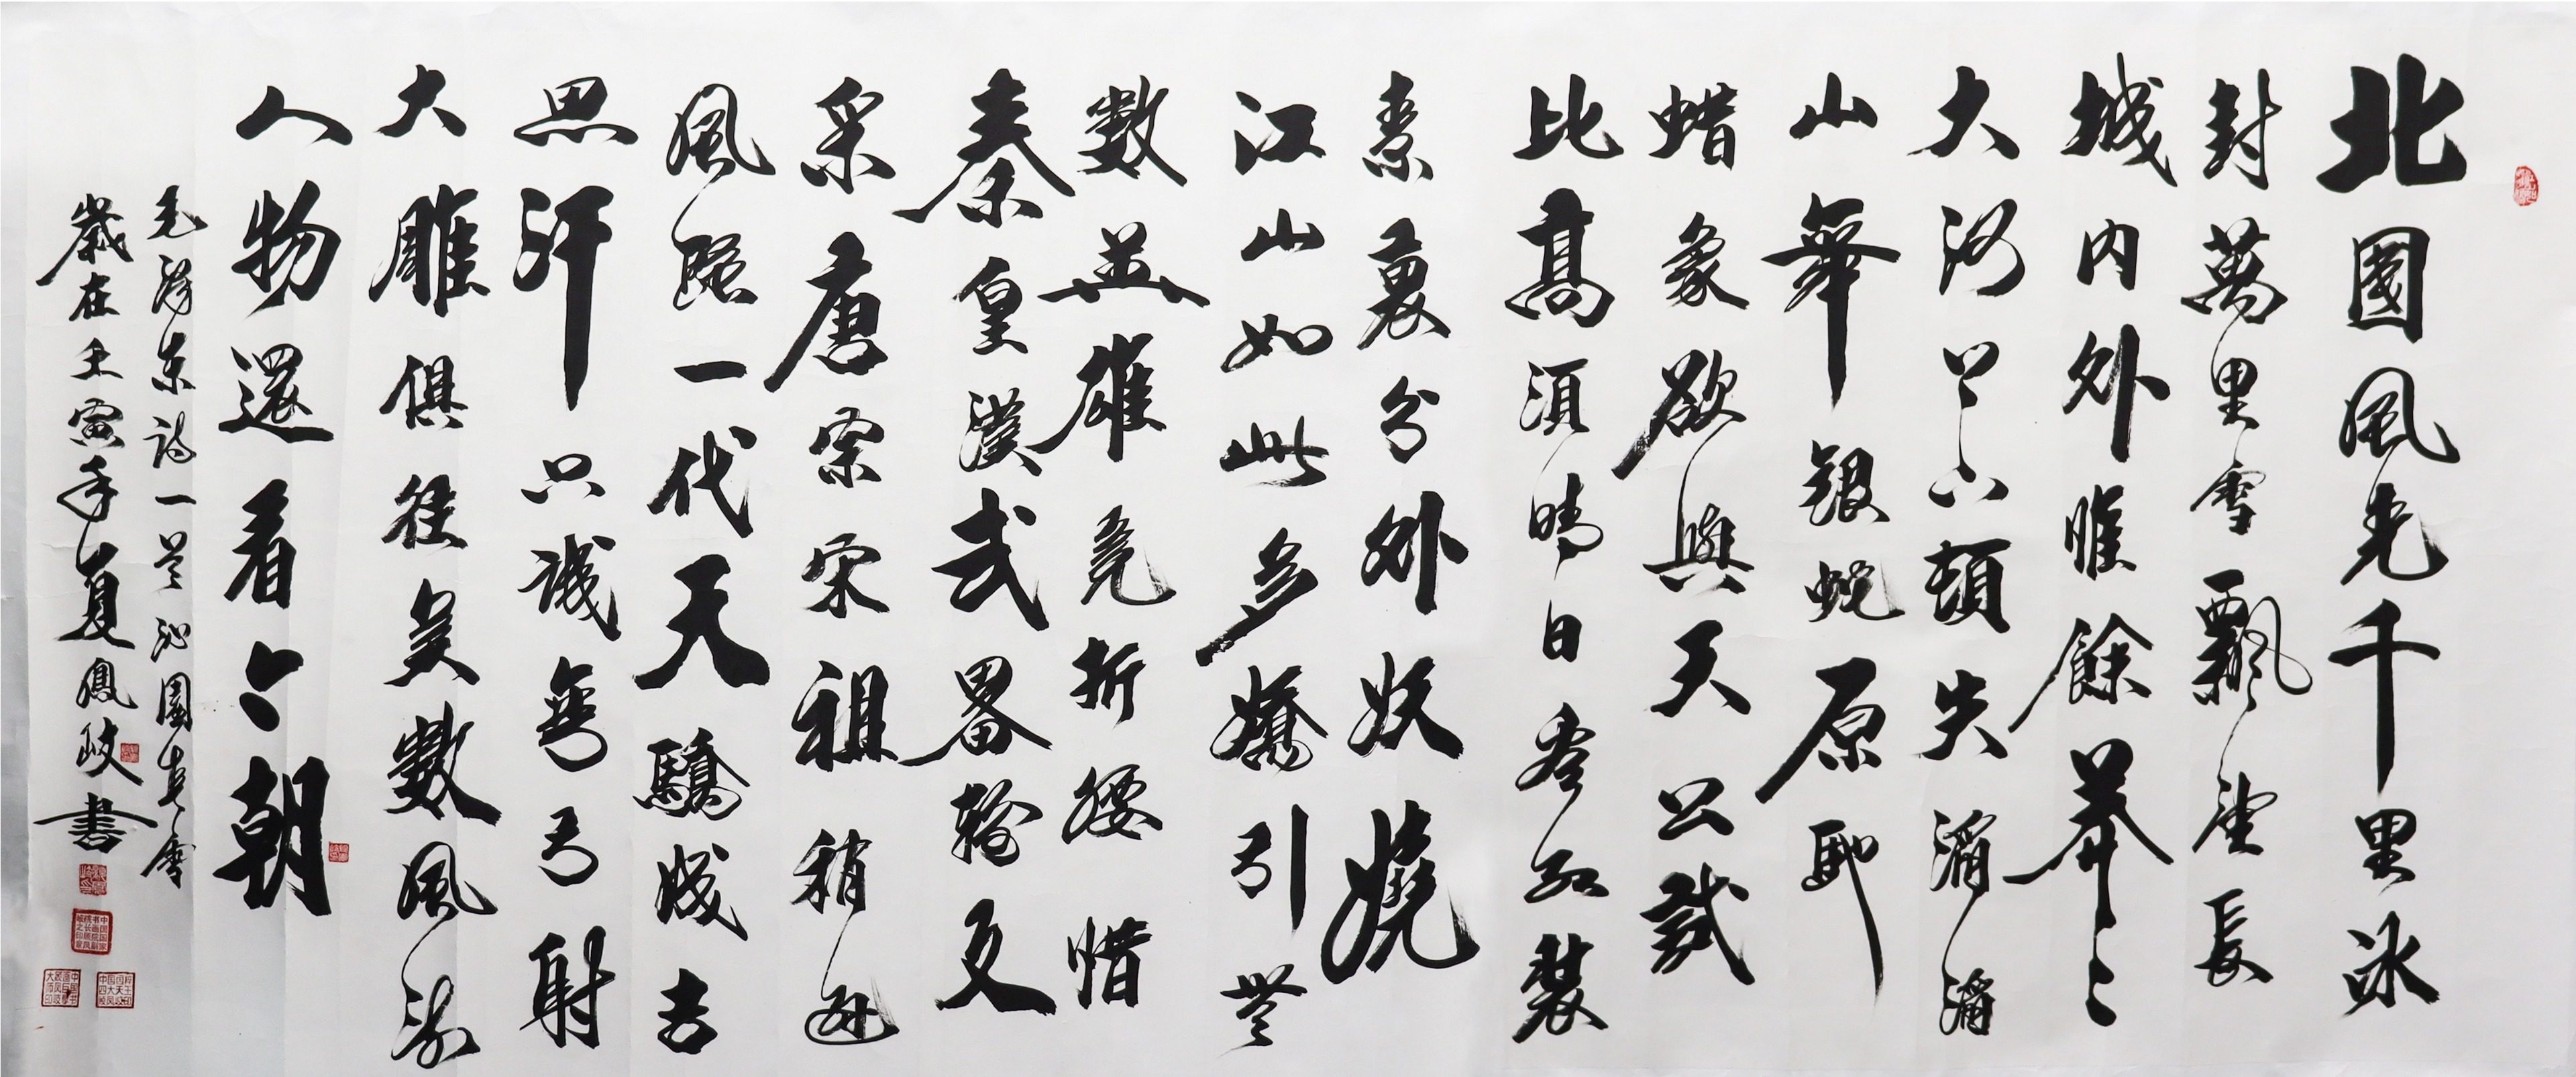 北國風光千里冰
封萬里雪飄望長
城内外惟餘莽〻
大河上下頓失滔滔
山舞銀蛇原馳
蜡象欲與天公試
比高須晴日看紅裝
素裹分外妖嬈
江山如此多嬌引無
數英雄竞折腰惜
秦皇漢武畧輸文
采唐宗宋祖稍遜
風騷一代天驕成吉
思汗只識彎弓射
大雕俱往矣數風流
人物還看今朝
毛澤東詩一首沁園春雪
歲在壬寅年夏鳳岐書